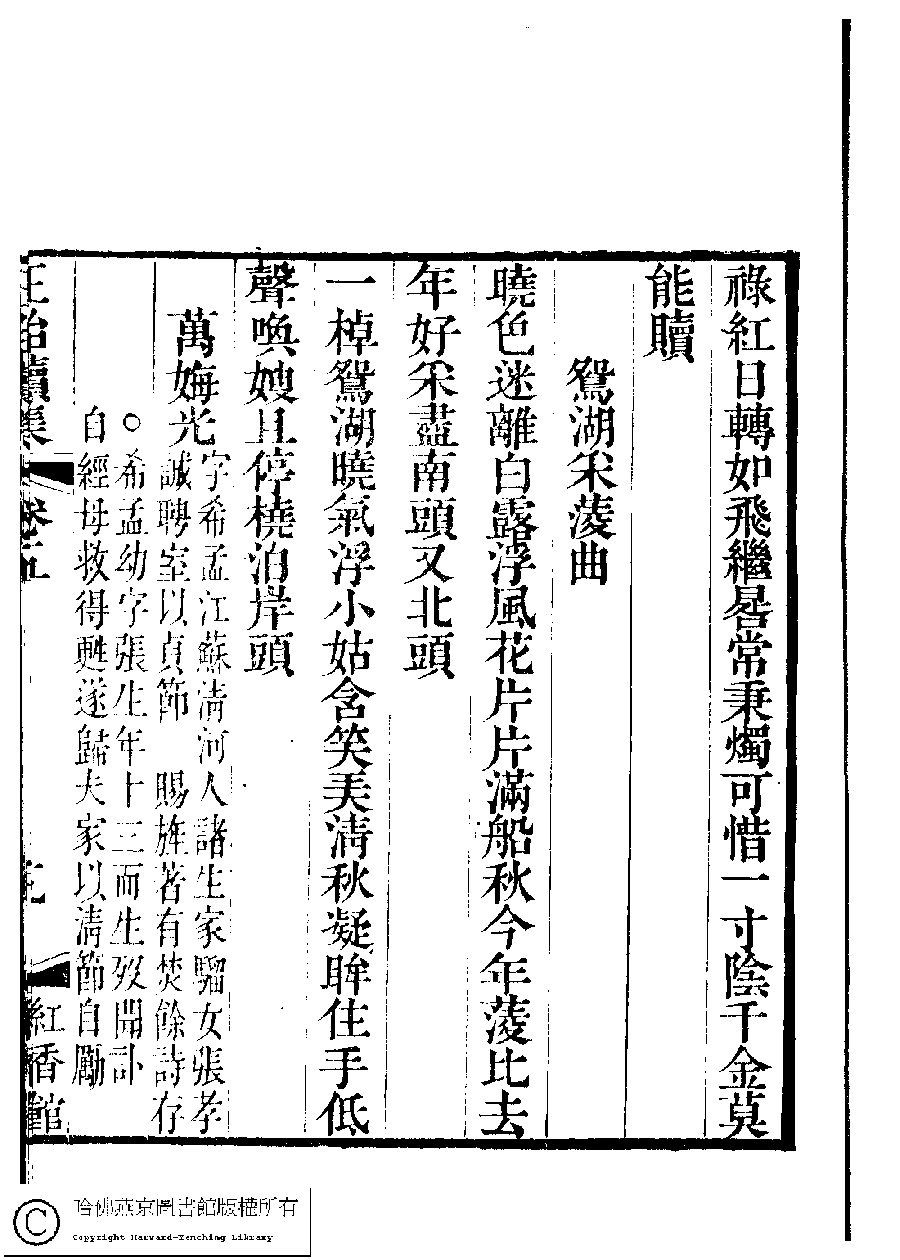 祿紅日轉如飛繼晷常秉燭可惜一寸陰千金莫
能贖
鴛湖采菱曲
曉色迷離白露浮風花片片滿船秋今年菱比去
年好采盡南頭又北頭
一棹鴛湖曉氣浮小姑含笑美清秋凝眸住手低
聲喚嫂且停橈泊岸頭
萬娒光
字希孟江蘇清河人諸生家騮女張孝
誠聘室以貞節　賜旌著有焚餘詩存
○希孟幼字張生年十三而生歿聞訃
自經母救得甦遂歸夫家以清節自勵
正始續集 卷五 紅香館
哈佛燕京圖書館版權所有
Copyright Harvard-Yenching Library